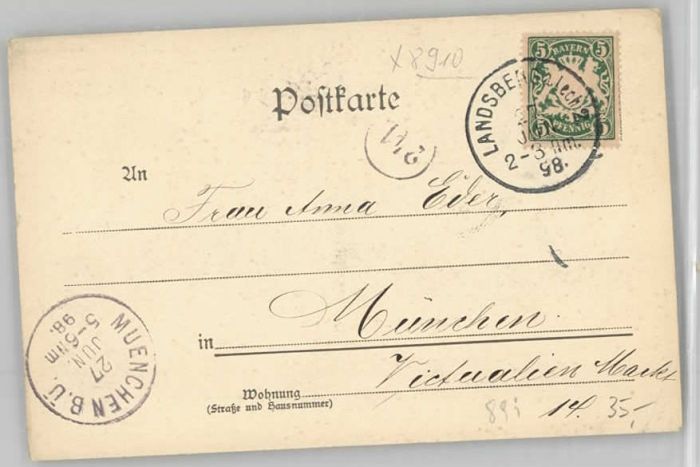 x 8910
5 BAYERN 5
5 PFENNIG 5
LANDSBERG a. Lech.
27
JUN.
2-3 Nm.
98.
Postkarte
241
An
Frau Anna Eder,
in München
Victualien Markt
Wohnung
(Straße und Hausnummer)
14.
89i
35,-
MUENCHEN B.U.
27
JUN.
5-6 Nm
98.